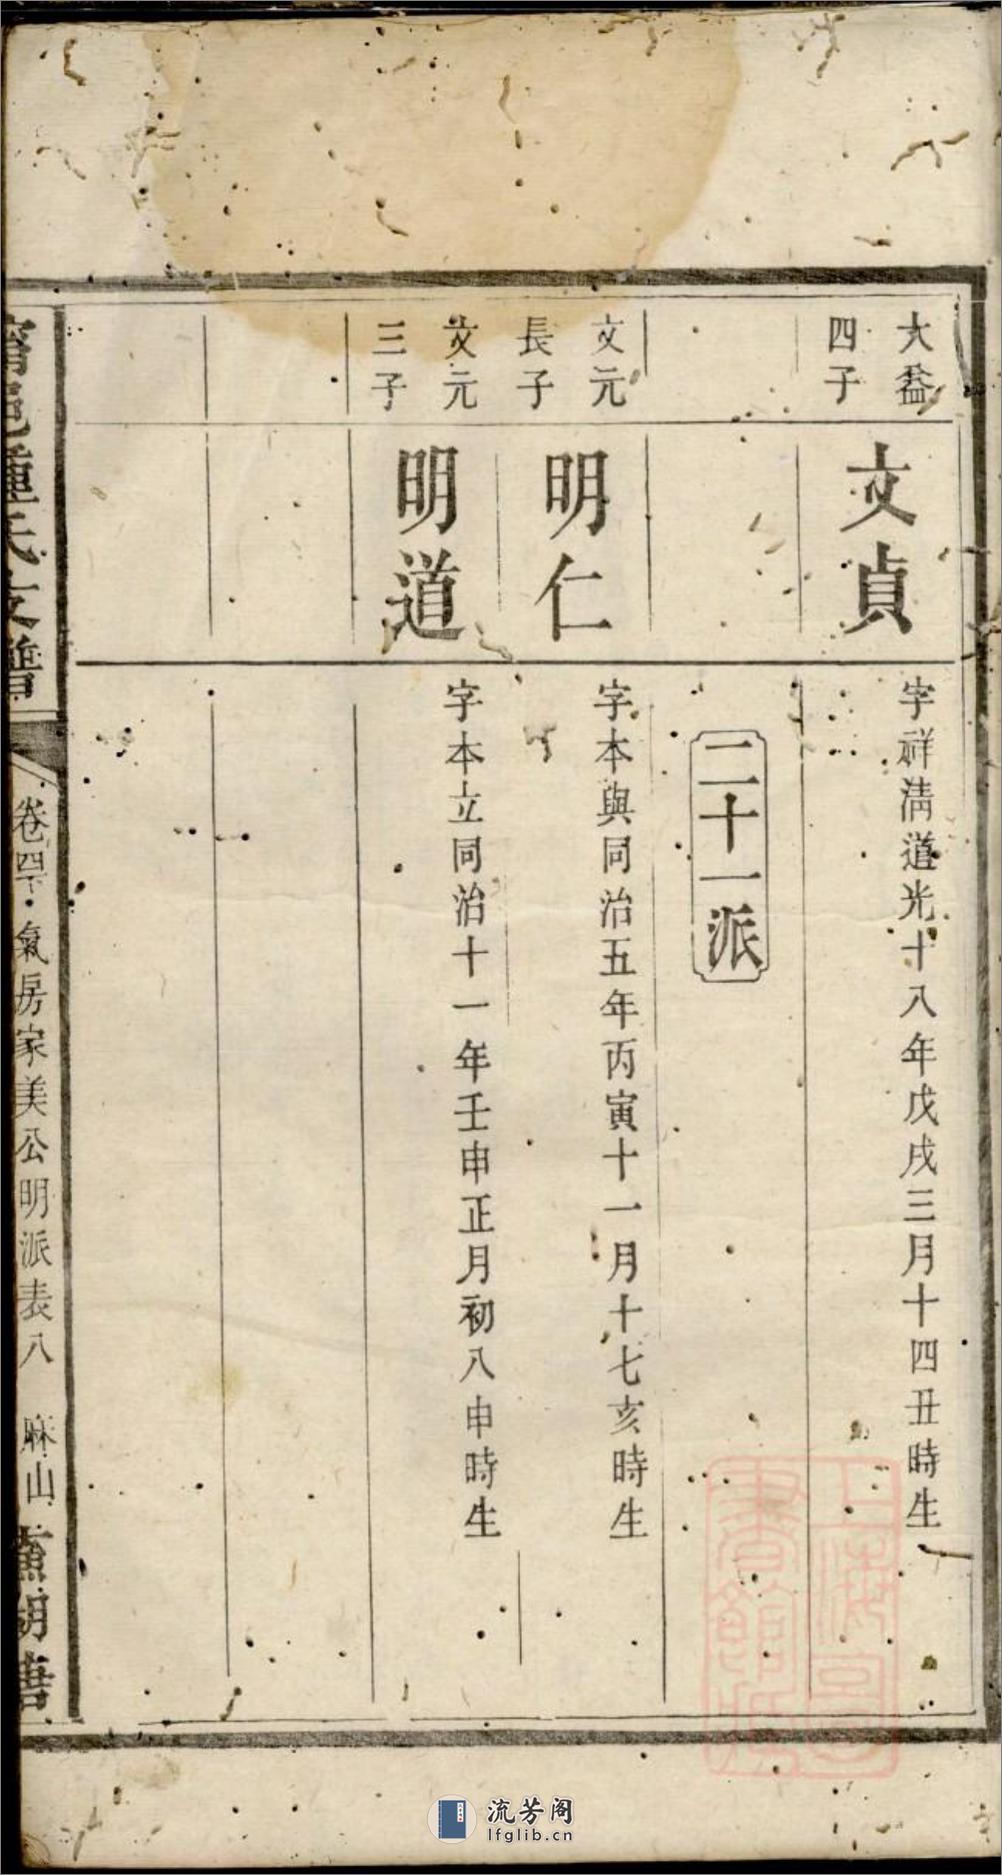 大益
四子
文貞
字祥淸道光十八年戊戌三月十四丑時生
二十一派
文元
長子
明仁
字本與同治五年丙寅十一月十七亥時生
文元
三子
明道
字本立同治十一年壬申正月初八申時生
鍾氏支譜
卷四
氣房家美公明派表八
麻山
上海圖
書館藏
流芳阁
lfglib.cn